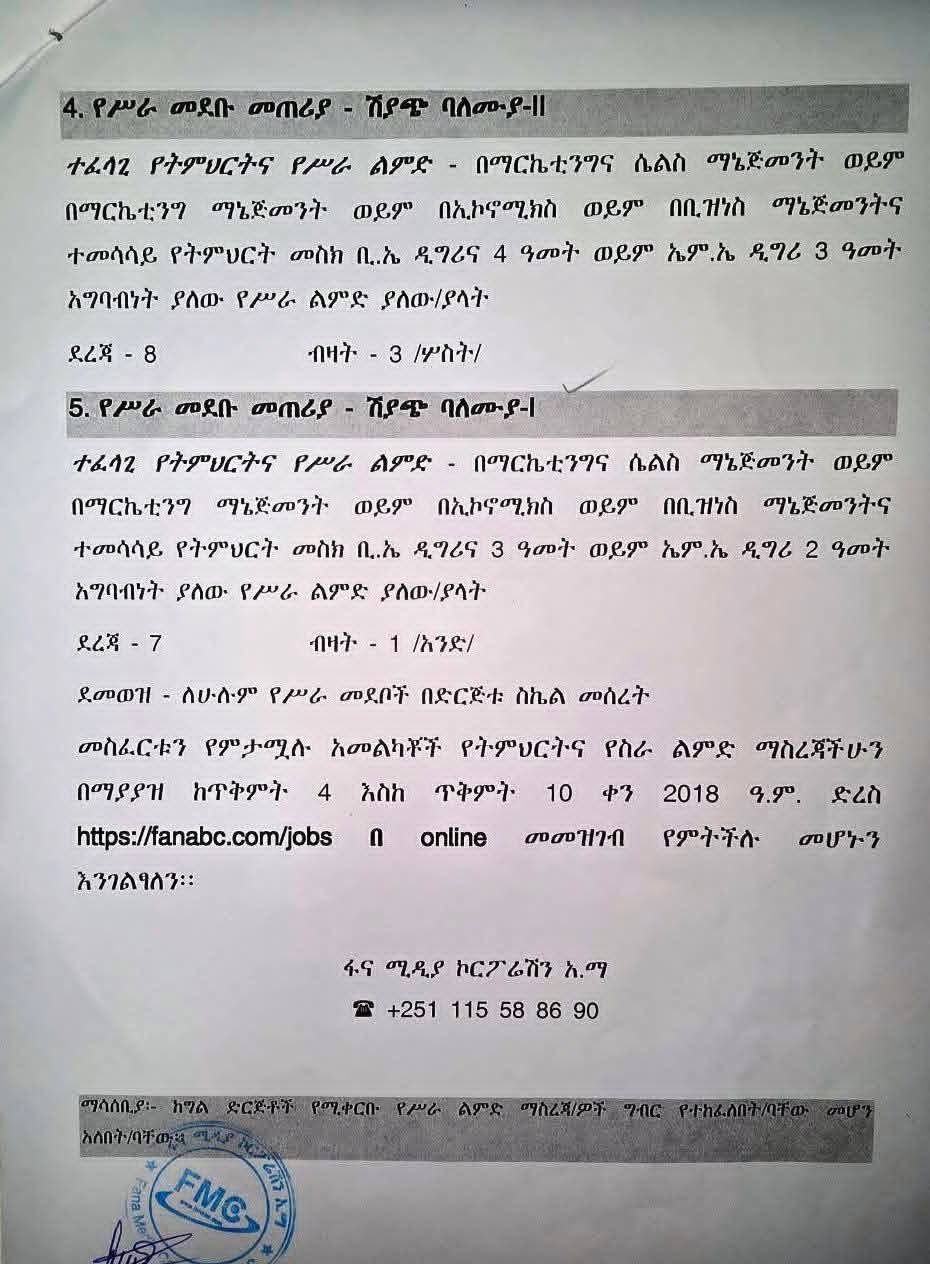 4. የሥራ መደቡ መጠሪያ - ሽያጭ ባለሙያ-II
ተፈላጊ የትምህርትና የሥራ ልምድ - በማርኬቲንግና ሴልስ ማኔጅመንት ወይም
በማርኬቲንግ ማኔጅመንት ወይም በኢኮኖሚክስ ወይም በቢዝነስ ማኔጅመንትና
ተመሳሳይ የትምህርት መስክ ቢ..ኤ ዲግሪና 4 ዓመት ወይም ኤም.ኤ ዲግሪ 3 ዓመት
አግባብነት ያለው የሥራ ልምድ ያለው/ያላት
ደረጃ - 8 ብዛት - 3 /ሦስት/
5. የሥራ መደቡ መጠሪያ - ሽያጭ ባለሙያ-I
ተፈላጊ የትምህርትና የሥራ ልምድ - በማርኬቲንግና ሴልስ ማኔጅመንት ወይም
በማርኬቲንግ ማኔጅመንት ወይም በኢኮኖሚክስ ወይም በቢዝነስ ማኔጅመንትና
ተመሳሳይ የትምህርት መስክ ቢ..ኤ ዲግሪና 3 ዓመት ወይም ኤም.ኤ ዲግሪ 2 ዓመት
አግባብነት ያለው የሥራ ልምድ ያለው/ያላት
ደረጃ - 7 ብዛት - 1 /አንድ/
ደመወዝ - ለሁሉም የሥራ መደቦች በድርጅቱ ስኬል መሰረት
መስፈርቱን የምታሟሉ አመልካቾች የትምህርትና የስራ ልምድ ማስረጃችሁን
በማያያዝ ከጥቅምት 4 እስከ ጥቅምት 10 ቀን 2018 ዓ.ም. ድረስ
https://fanabc.com/jobs በ online መመዝገብ የምትችሉ መሆኑን
እንገልፃለን፡፡
ፋና ሚዲያ ኮርፖሬሽን አ.ማ
☎ +251 115 58 86 90
ማሳሰቢያ፡- ከግል ድርጅቶች የሚቀርቡ የሥራ ልምድ ማስረጃ/ዎች ግብር የተከፈለበት/ባቸው መሆን
አለበት/ባቸው፡፡
ሚዲያ ኮርፖሬሽን አ.ማ
FMC
Fana Me